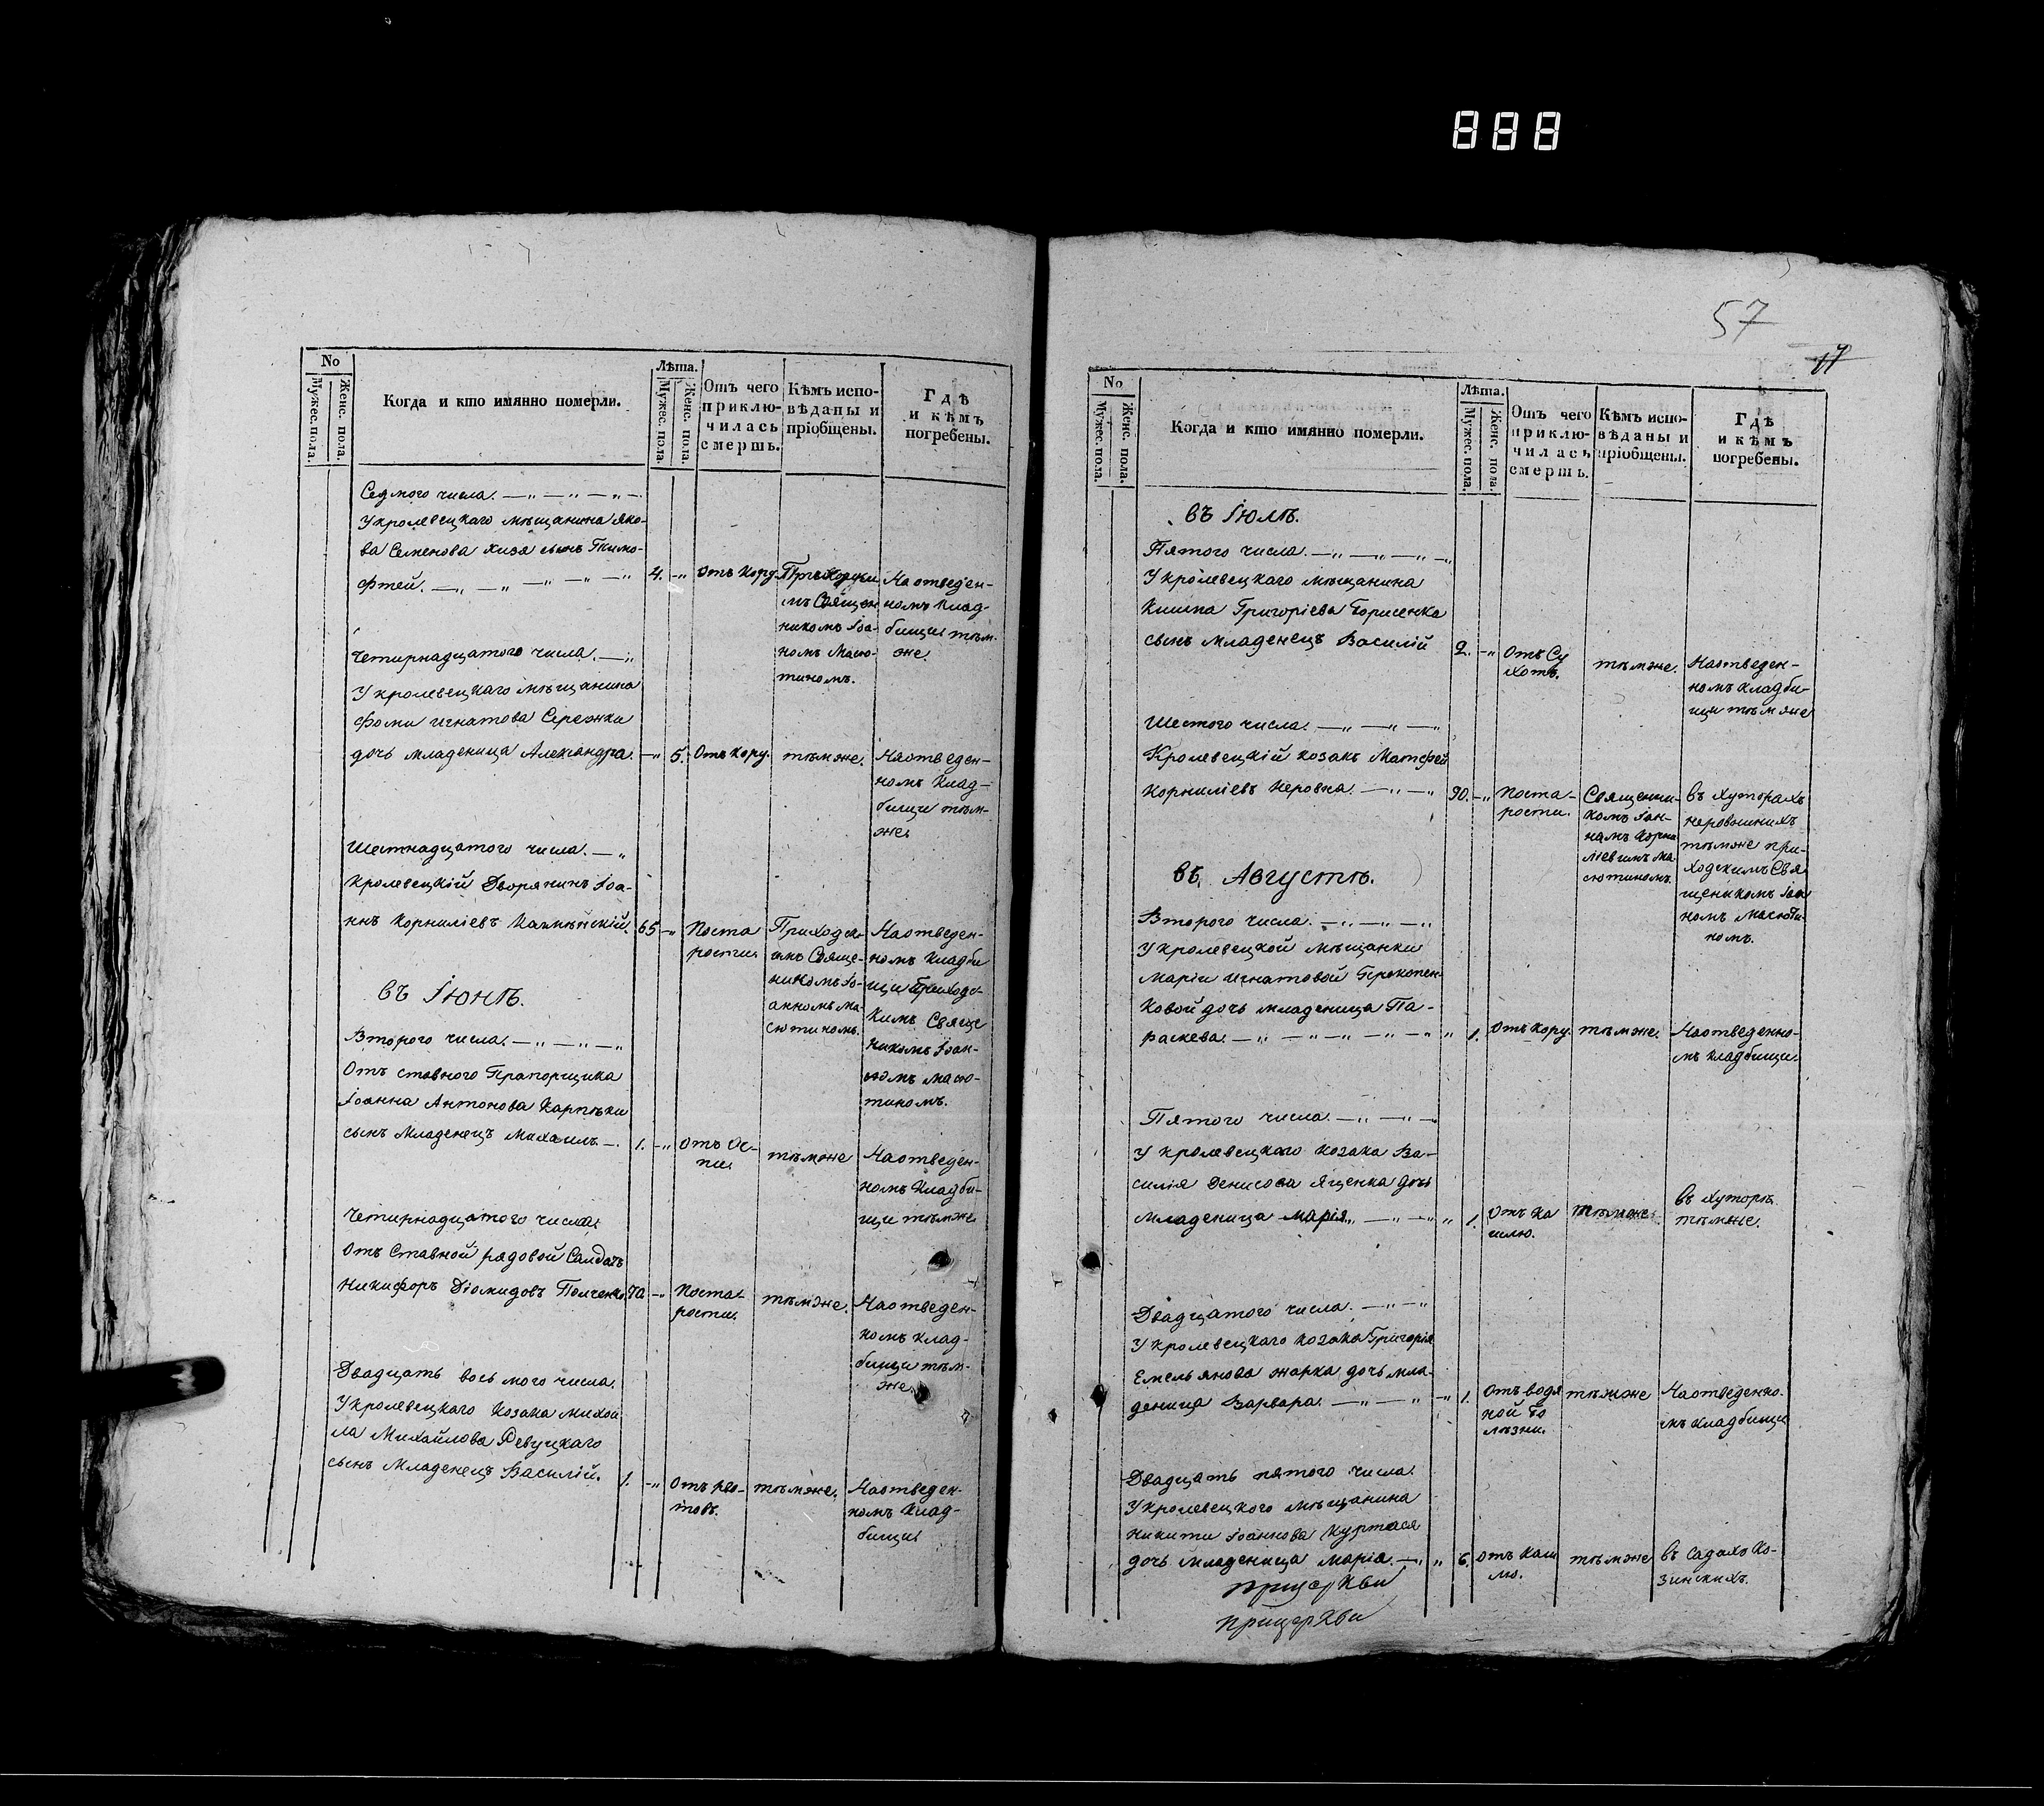 888
57
17
No
Мужес. пола.
Женс. пола.
Когда и кто имянно померли.
Лѣта.
Мужес. пола.
Женс. пола.
Отъ чего
приклю-
чилась
смерть.
Кѣмъ испо-
вѣданы и
пріобщены.
Гдѣ
и кѣмъ
погребены.
Седмого числа.
У кролевецкаго мѣщанина Яко-
ва Семенова сынъ Тимо-
фтей.
4.
отъ кору.
мъ Священ
никомъ Іоа-
номъ Масю-
тиномъ.
На отведен-
номъ клад-
бищи тѣм-
же.
Четирнадцатого числа.
У кролевецкаго мѣщанина
Фоми Игнатова Сережки
дочь младеница Александра.
5.
Отъ кору.
тѣмже.
На отведен-
номъ клад-
бищи тѣм-
же.
Шестнадцатого числа.
Кролевецкій Дворянинъ Іоа-
ннъ Корниліевъ
65
Поста
рости.
Приходск-
имъ Свяще-
никомъ Іо-
анномъ Ма-
сютиномъ.
На отведен-
номъ кладби
щи Приходс-
кимъ Свяще
никомъ Іоан-
номъ Масю-
тиномъ.
въ Іюнѣ.
Второго числа.
Отъ ставного Прапорщика
Іоанна Антонова Карпѣки
сынъ Младенецъ Михаилъ
1.
Отъ Ос-
пи.
тѣмже
На отведен-
номъ кладби-
щи тѣмже
Четирнадцатого числа
Отъ Ставной рядовой Салдатъ
Никифоръ Діомидовъ
70.
Поста-
рости.
тѣмже.
На отведен-
номъ клад-
бищи тѣм-
же.
Двадцать восьмого числа.
У кролевецкаго козака Михаи
ла Михайлова Ревуцкаго
сынъ Младенецъ Василій.
1.
Отъ рво-
товъ.
тѣмже.
На отведен-
номъ клад-
бищи
No
Мужес. пола.
Женс. пола.
Когда и кто имянно померли.
Лѣта.
Мужес. пола.
Женс. пола.
Отъ чего
приклю-
чилась
смерть.
Кѣмъ испо-
вѣданы и
пріобщены.
Гдѣ
и кѣмъ
погребены.
въ Іюлѣ.
Пятого числа.
У кролевецкаго мѣщанина
Григоріева Борисенка
сынъ младенецъ Василій
2.
Отъ Су
хотъ.
тѣмже.
На отведен-
номъ кладби-
щи тѣмже
Шестого числа.
Кролевецкій козакъ Матфей
Корниліевъ Неровна.
90.
Поста-
рости.
Священни-
комъ Іоан-
номъ Корни
ліевимъ Ма-
сютиномъ.
въ хуторахъ
неровниныхъ
тѣмже при-
ходскимъ Свя
щеникомъ Іоан
номъ Масюти-
номъ.
въ Августѣ.
Второго числа.
У кролевецкой мѣщанки
Маріи Игнатовой Прокопен-
ковой дочь младеница Па-
раскева.
1.
Отъ кору.
тѣмже.
На отведенно-
мъ кладбищи.
Пятого числа.
У кролевецкого козака Ва-
силія Денисова Ященка дочь
младеница Марія
1.
Отъ ка
шлю.
тѣмже
въ хуторѣ
тѣмже.
Двадцатого числа.
У кролевецкаго козака Григорія
Емельянова Жарка дочь мла-
деница Варвара.
1.
Отъ водя
ной бо
лѣзни.
тѣмже
На отведенно-
мъ кладбищи
Двадцать пятого числа.
У кролевецкого мѣщанина
Никити Іоаннова Куртася
дочь младеница Марія.
6.
Отъ каш
лю.
тѣмже
въ садахъ Ко-
зинскихъ.
прицеркви
прицеркви